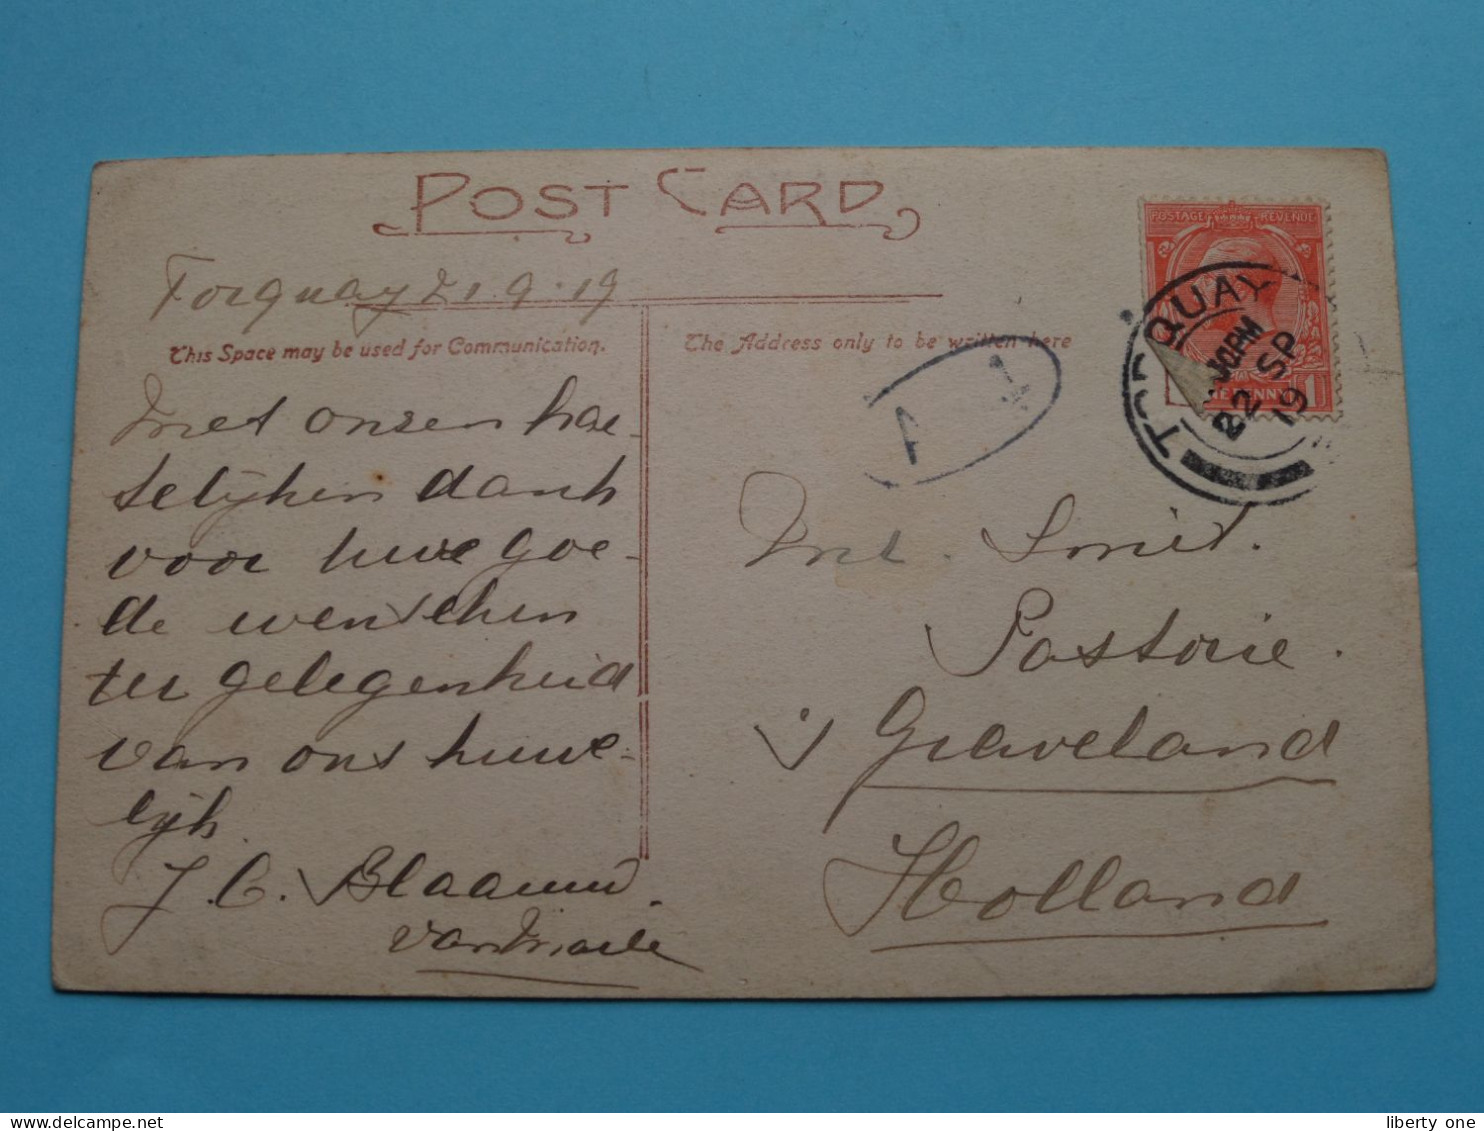 POST CARD
Torquay 21.9.19
This Space may be used for Communication.
The Address only to be written here
POSTAGE REVENUE
TORQUAY
22 SP
19
A 1
Met onzen har-
telijken dank
voor uwe goe-
de wenschen
ter gelegenheid
van ons huwe-
lijk
J. C. Blaauw.
van
Smit.
Pastorie.
's Graveland
Holland
liberty one